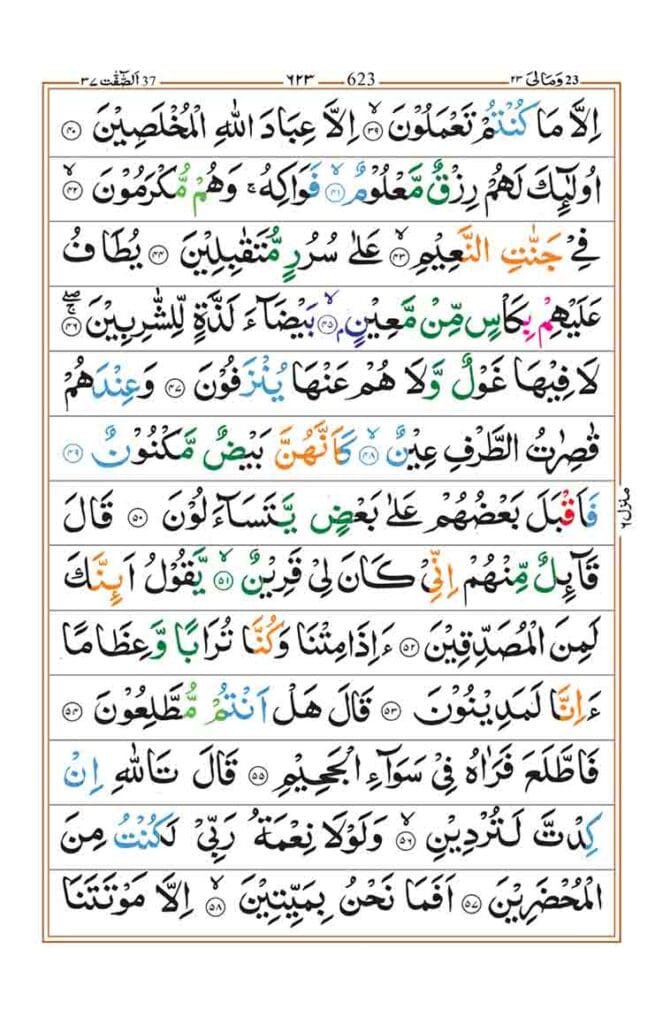 ٣٧ اَلصّٰٓفّٰت 37 ٦٢٣ 623 ٢٣ وَمَالِيَ 23
اِلَّا مَا كُنْتُمْ تَعْمَلُوْنَ ۙ‏﴿۳۹﴾ اِلَّا عِبَادَ اللّٰهِ الْمُخْلَصِيْنَ ﴿۴۰﴾
اُولٰٓئِكَ لَهُمْ رِزْقٌ مَّعْلُوْمٌ ۙ‏﴿۴۱﴾ فَوَاكِهُ ۚ وَهُمْ مُّكْرَمُوْنَ ۙ‏﴿۴۲﴾
فِيْ جَنّٰتِ النَّعِيْمِ ۙ‏﴿۴۳﴾ عَلٰى سُرُرٍ مُّتَقٰبِلِيْنَ ﴿۴۴﴾ يُطَافُ
عَلَيْهِمْ بِكَاْسٍ مِّنْ مَّعِيْنٍۭ ۙ‏﴿۴۵﴾ بَيْضَآءَ لَذَّةٍ لِّلشّٰرِبِيْنَ ۖۚ‏﴿۴۶﴾
لَا فِيْهَا غَوْلٌ وَّلَا هُمْ عَنْهَا يُنْزَفُوْنَ ﴿۴۷﴾ وَعِنْدَهُمْ
قٰصِرٰتُ الطَّرْفِ عِيْنٌ ۙ‏﴿۴۸﴾ كَاَنَّهُنَّ بَيْضٌ مَّكْنُوْنٌ ﴿۴۹﴾
فَاَقْبَلَ بَعْضُهُمْ عَلٰى بَعْضٍ يَّتَسَآءَلُوْنَ ﴿۵۰﴾ قَالَ
قَآئِلٌ مِّنْهُمْ اِنِّيْ كَانَ لِيْ قَرِيْنٌ ۙ‏﴿۵۱﴾ يَّقُوْلُ اَئِنَّكَ
لَمِنَ الْمُصَدِّقِيْنَ ﴿۵۲﴾ ءَاِذَا مِتْنَا وَكُنَّا تُرَابًا وَّعِظَامًا
ءَاِنَّا لَمَدِيْنُوْنَ ﴿۵۳﴾ قَالَ هَلْ اَنْتُمْ مُّطَّلِعُوْنَ ﴿۵۴﴾
فَاطَّلَعَ فَرَاٰهُ فِيْ سَوَآءِ الْجَحِيْمِ ﴿۵۵﴾ قَالَ تَاللّٰهِ اِنْ
كِدْتَّ لَتُرْدِيْنِ ۙ‏﴿۵۶﴾ وَلَوْلَا نِعْمَةُ رَبِّيْ لَكُنْتُ مِنَ
الْمُحْضَرِيْنَ ﴿۵۷﴾ اَفَمَا نَحْنُ بِمَيِّتِيْنَ ۙ‏﴿۵۸﴾ اِلَّا مَوْتَتَنَا
منزل ٦